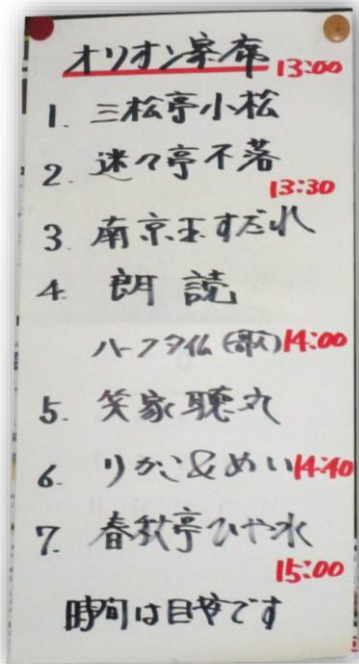 オリオン寄席 13:00
1. 三松亭小松
2. 迷々亭不落
13:30
3 南京玉すだれ
4. 朗読
ハーフタイム(歌)14:00
5. 笑家聴丸
6. りかこ&めい14:40
7. 春秋亭ひや水
15:00
時間は目安です